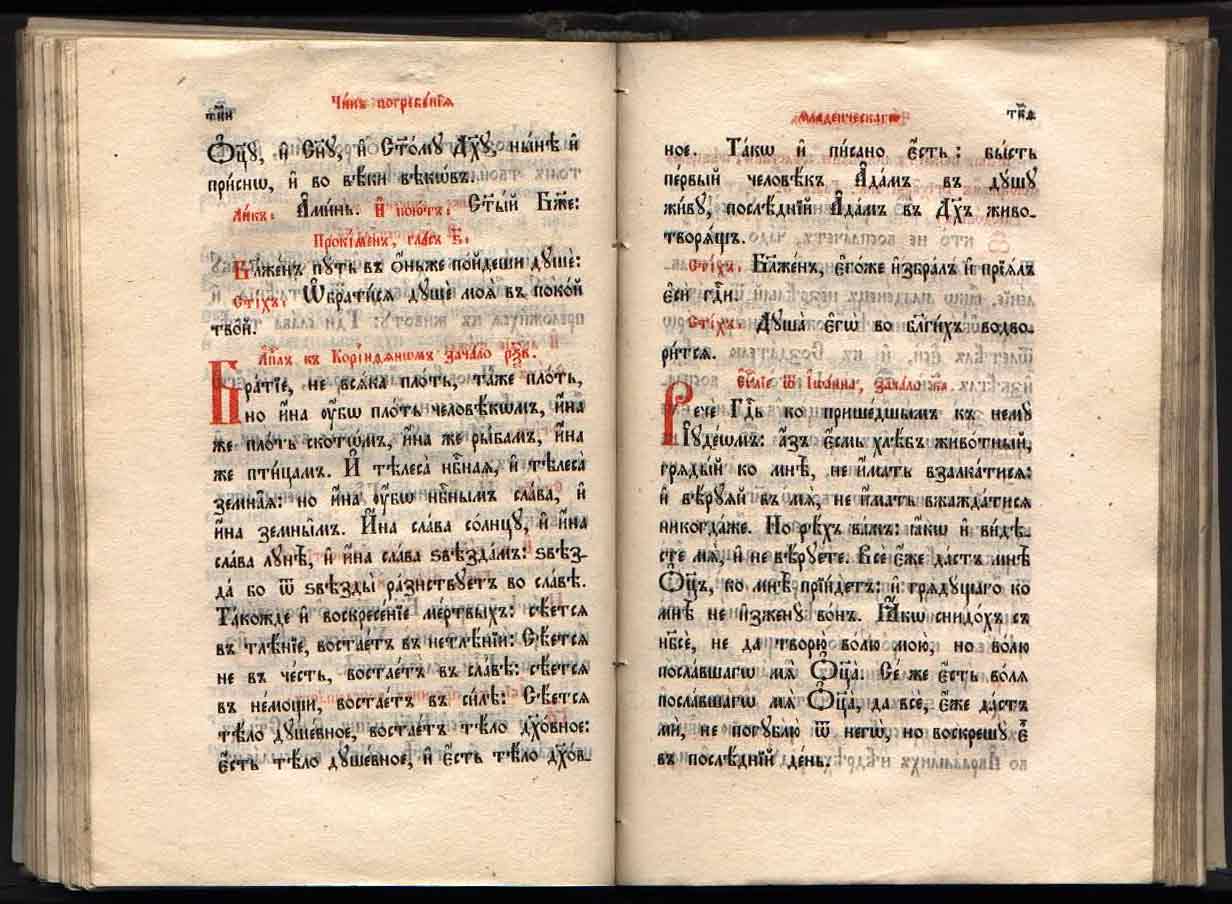 тн҃и
Чи́нъ погребе́нїѧ
Ѻ҆ц҃ꙋ̀, и҆ сн҃ꙋ, и҆ ст҃о́мꙋ дх҃ꙋ, ны́нѣ и҆
при́снѡ, и҆ во вѣ́ки вѣкѡ́въ.
Ли́къ: А҆ми́нь. И҆ пою́тъ: Ст҃ы́й бж҃е:
Прокі́менъ, гла́съ ѕ҃.
Бл҃же́нъ пꙋ́ть въ ѻ҆́ньже по́йдеши дꙋшѐ:
Сті́хъ: Ѡ҆брати́сѧ дꙋшѐ моѧ̀ въ поко́й
тво́й.
А҆пⷭ҇лъ къ корі́нѳѧнѡмъ зача́ло рѯ҃в.
Бра́тїе, не всѧ́ка пло́ть, та́ѧже пло́ть,
но и҆́на ᲂу҆́бѡ пло́ть человѣ́кѡмъ, и҆́на
же пло́ть скотѡ́мъ, и҆́на же ры́бамъ, и҆́на
же пти́цамъ. И҆ тѣлеса̀ нбⷭ҇наѧ, и҆ тѣлеса̀
земна̑ѧ: но и҆́на ᲂу҆́бѡ нбⷭ҇нымъ сла́ва, и҆
и҆́на земны̑мъ. И҆́на сла́ва со́лнцꙋ, и҆ и҆́на
сла́ва лꙋнѣ̀, и҆ и҆́на сла́ва ѕвѣзда́мъ: ѕвѣз-
да́ бо ѿ ѕвѣзды̀ ра́знствꙋетъ во сла́вѣ.
Та́кожде и҆ воскресе́нїе ме́ртвыхъ: сѣ́етсѧ
въ тлѣ́нїе, востае́тъ въ нетлѣ́нїи: Сѣ́етсѧ
не въ че́сть, востае́тъ въ сла́вѣ: сѣ́етсѧ
въ не́мощи, востае́тъ въ си́лѣ: Сѣ́етсѧ
тѣ́ло дꙋше́вное, востае́тъ тѣ́ло дꙋхо́вное:
Е҆́сть тѣ́ло дꙋше́вное, и҆ є҆́сть тѣ́ло дх҃ов-
младе́нческагѡ
тн҃ѳ
ное. Та́кѡ и҆ пи́сано є҆́сть: бы́сть
пе́рвый человѣ́къ А҆да́мъ въ дꙋ́шꙋ
жи́вꙋ, послѣ́днїй А҆да́мъ въ дх҃ъ живо-
творѧ́щъ.
Сті́хъ: Бл҃же́нъ, є҆го́же и҆збра́лъ и҆ прїѧ́лъ
є҆сѝ гдⷭ҇и.
Сті́хъ: Дꙋша̀ є҆гѡ̀ во бл҃ги́хъ водво-
ри́тсѧ.
Е҆ѵⷢ҇лїе ѿ і҆ѡа́нна, зача́ло к҃а.
Речѐ гдⷭ҇ь ко прише́дшымъ къ немꙋ̀
і҆ꙋде́ѡмъ: а҆́зъ є҆́смь хлѣ́бъ живо́тный,
грѧды́й ко мнѣ̀, не и҆́мать взалка́тисѧ:
и҆ вѣ́рꙋѧй въ мѧ̀, не и҆́мать вжажда́тисѧ
никогда́же. Но рѣ́хъ ва́мъ: ꙗ҆́кѡ и҆ ви́дѣ-
сте мѧ̀, и҆ не вѣ́рꙋете. Всѐ є҆́же да́стъ мнѣ̀
Ѻ҆ц҃ъ, ко мнѣ̀ прїи́детъ: и҆ грѧдꙋ́щаго ко
мнѣ̀ не и҆зженꙋ̀ во́нъ. Ꙗ҆́кѡ снидо́хъ съ
нб҃сѐ, не да творю̀ во́лю мою̀, но во́лю
посла́вшагѡ мѧ̀ Ѻ҆ц҃а̀. Се́ же є҆́сть во́лѧ
посла́вшагѡ мѧ̀ Ѻ҆ц҃а̀, да всѐ, є҆́же да́стъ
мѝ, не погꙋблю̀ ѿ негѡ̀, но воскрешꙋ̀ є҆̀
въ послѣ́днїй де́нь.